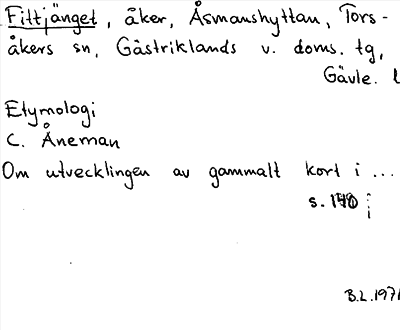 Fittjänget, åker, Åsmanshyttan, Tors-
åkers sn, Gästriklands v. doms. tg,
Gävle. l
Etymologi
C. Åneman
Om utvecklingen av gammalt kort i ...
s. 140
B.L. 1971